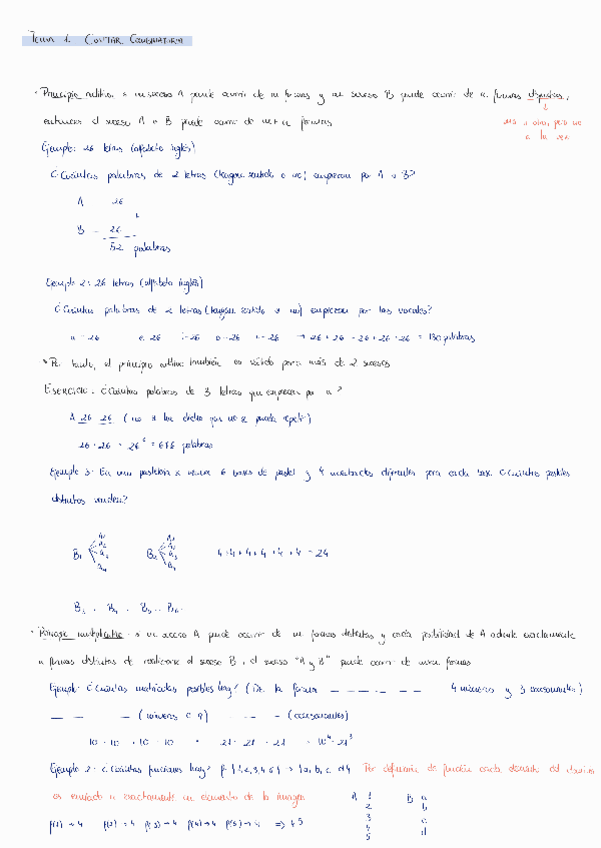 Tema 1. CONTAR. COMBINATORIA
· Principio aditivo: si un suceso A puede ocurrir de m formas y un suceso B puede ocurrir de n formas disjuntas,
entonces el suceso A o B puede ocurrir de m+n formas
una u otra, pero no
a la vez
Ejemplo: 26 letras (alfabeto inglés)
¿Cuántas palabras de 2 letras (tengan sentido o no) empiezan por A o B?
A 26
+
B - 26
52 palabras
Ejemplo 2: 26 letras (alfabeto inglés)
¿Cuántas palabras de 2 letras (tengan sentido o no) empiezan por las vocales?
a - 26 e. 26 i-26 o-26 u-26 → 26+26+26+26+26 = 130 palabras
Por tanto, el principio aditivo también es válido para más de 2 sucesos
Ejercicio. ¿Cuántas palabras de 3 letras que empiezan por a?
A 26 26 (no se puede repetir)
26 · 26 = 26² = 676 palabras
Ejemplo 3: En una pastelería se venden 6 bases de pastel y 4 diferentes para cada base. ¿Cuántos pasteles
distintos venden?
B₁ B₂ 4+4+4+4+4+4 = 24
B₃ . B₄ . B₅ . B₆.
· Principio multiplicativo: si un suceso A puede ocurrir de m formas distintas y cada posibilidad de A admite exactamente
n formas distintas de realizarse el suceso B, el suceso "A y B" puede ocurrir de m·n formas
Ejemplo: ¿Cuántas matrículas posibles hay? (De la forma 4 números y 3 consonantes)
(números 0-9) (consonantes)
10 · 10 · 10 · 10 · 21 · 21 · 21 = 10⁴ · 21³
Ejemplo 2: ¿Cuántas funciones hay? f: {1,2,3,4,5} → {a,b,c,d} Por definición de función cada elemento del dominio
es enviado a exactamente un elemento de la imagen
A 1 B a
2 b
3 c
4 d
5
f(1) → 4 f(2) → 4 f(3) → 4 f(4) → 4 f(5) → 4 => 4⁵